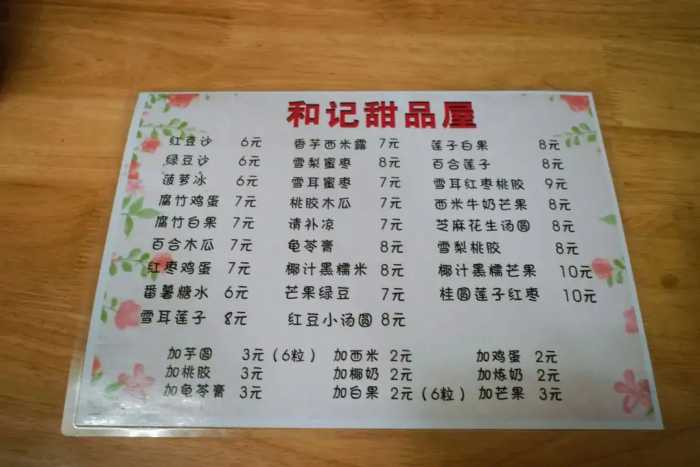 和记甜品屋
红豆沙 6元 香芋西米露 7元 莲子白果 8元
绿豆沙 6元 雪梨蜜枣 8元 百合莲子 8元
菠萝冰 6元 雪耳蜜枣 7元 雪耳红枣桃胶 9元
腐竹鸡蛋 7元 桃胶木瓜 7元 西米牛奶芒果 8元
腐竹白果 7元 请补凉 7元 芝麻花生汤圆 8元
百合木瓜 7元 龟苓膏 8元 雪梨桃胶 8元
红枣鸡蛋 7元 椰汁黑糯米 8元 椰汁黑糯芒果 10元
番薯糖水 6元 芒果绿豆 7元 桂圆莲子红枣 10元
雪耳莲子 8元 红豆小汤圆 8元
加芋圆 3元(6粒) 加西米 2元 加鸡蛋 2元
加桃胶 3元 加椰奶 2元 加炼奶 2元
加龟苓膏 3元 加白果 2元(6粒) 加芒果 3元